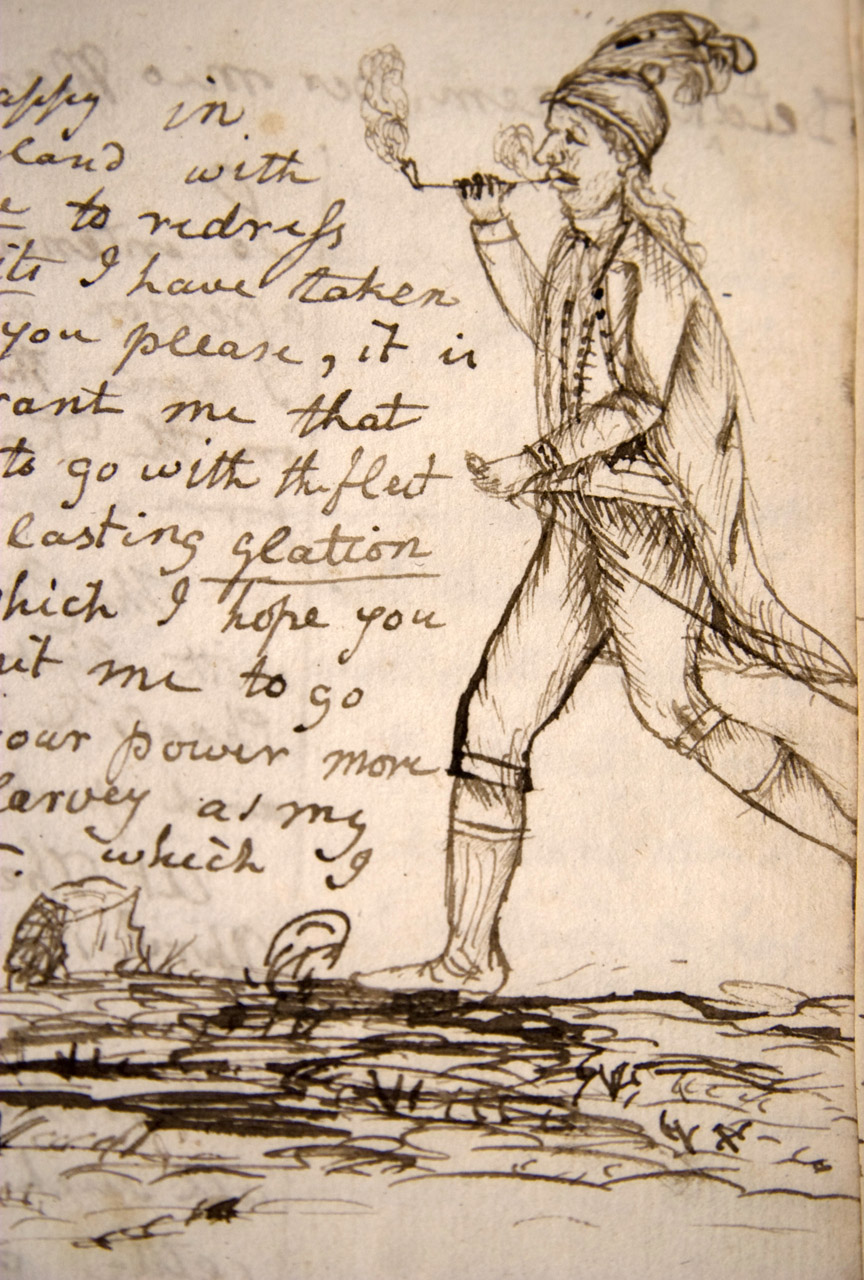 appy in
eland with
e to redress
its I have taken
you please, it is
rant me that
to go with th fleet
lasting glation
hich I hope you
it me to go
our power more
Harvey as my
which I